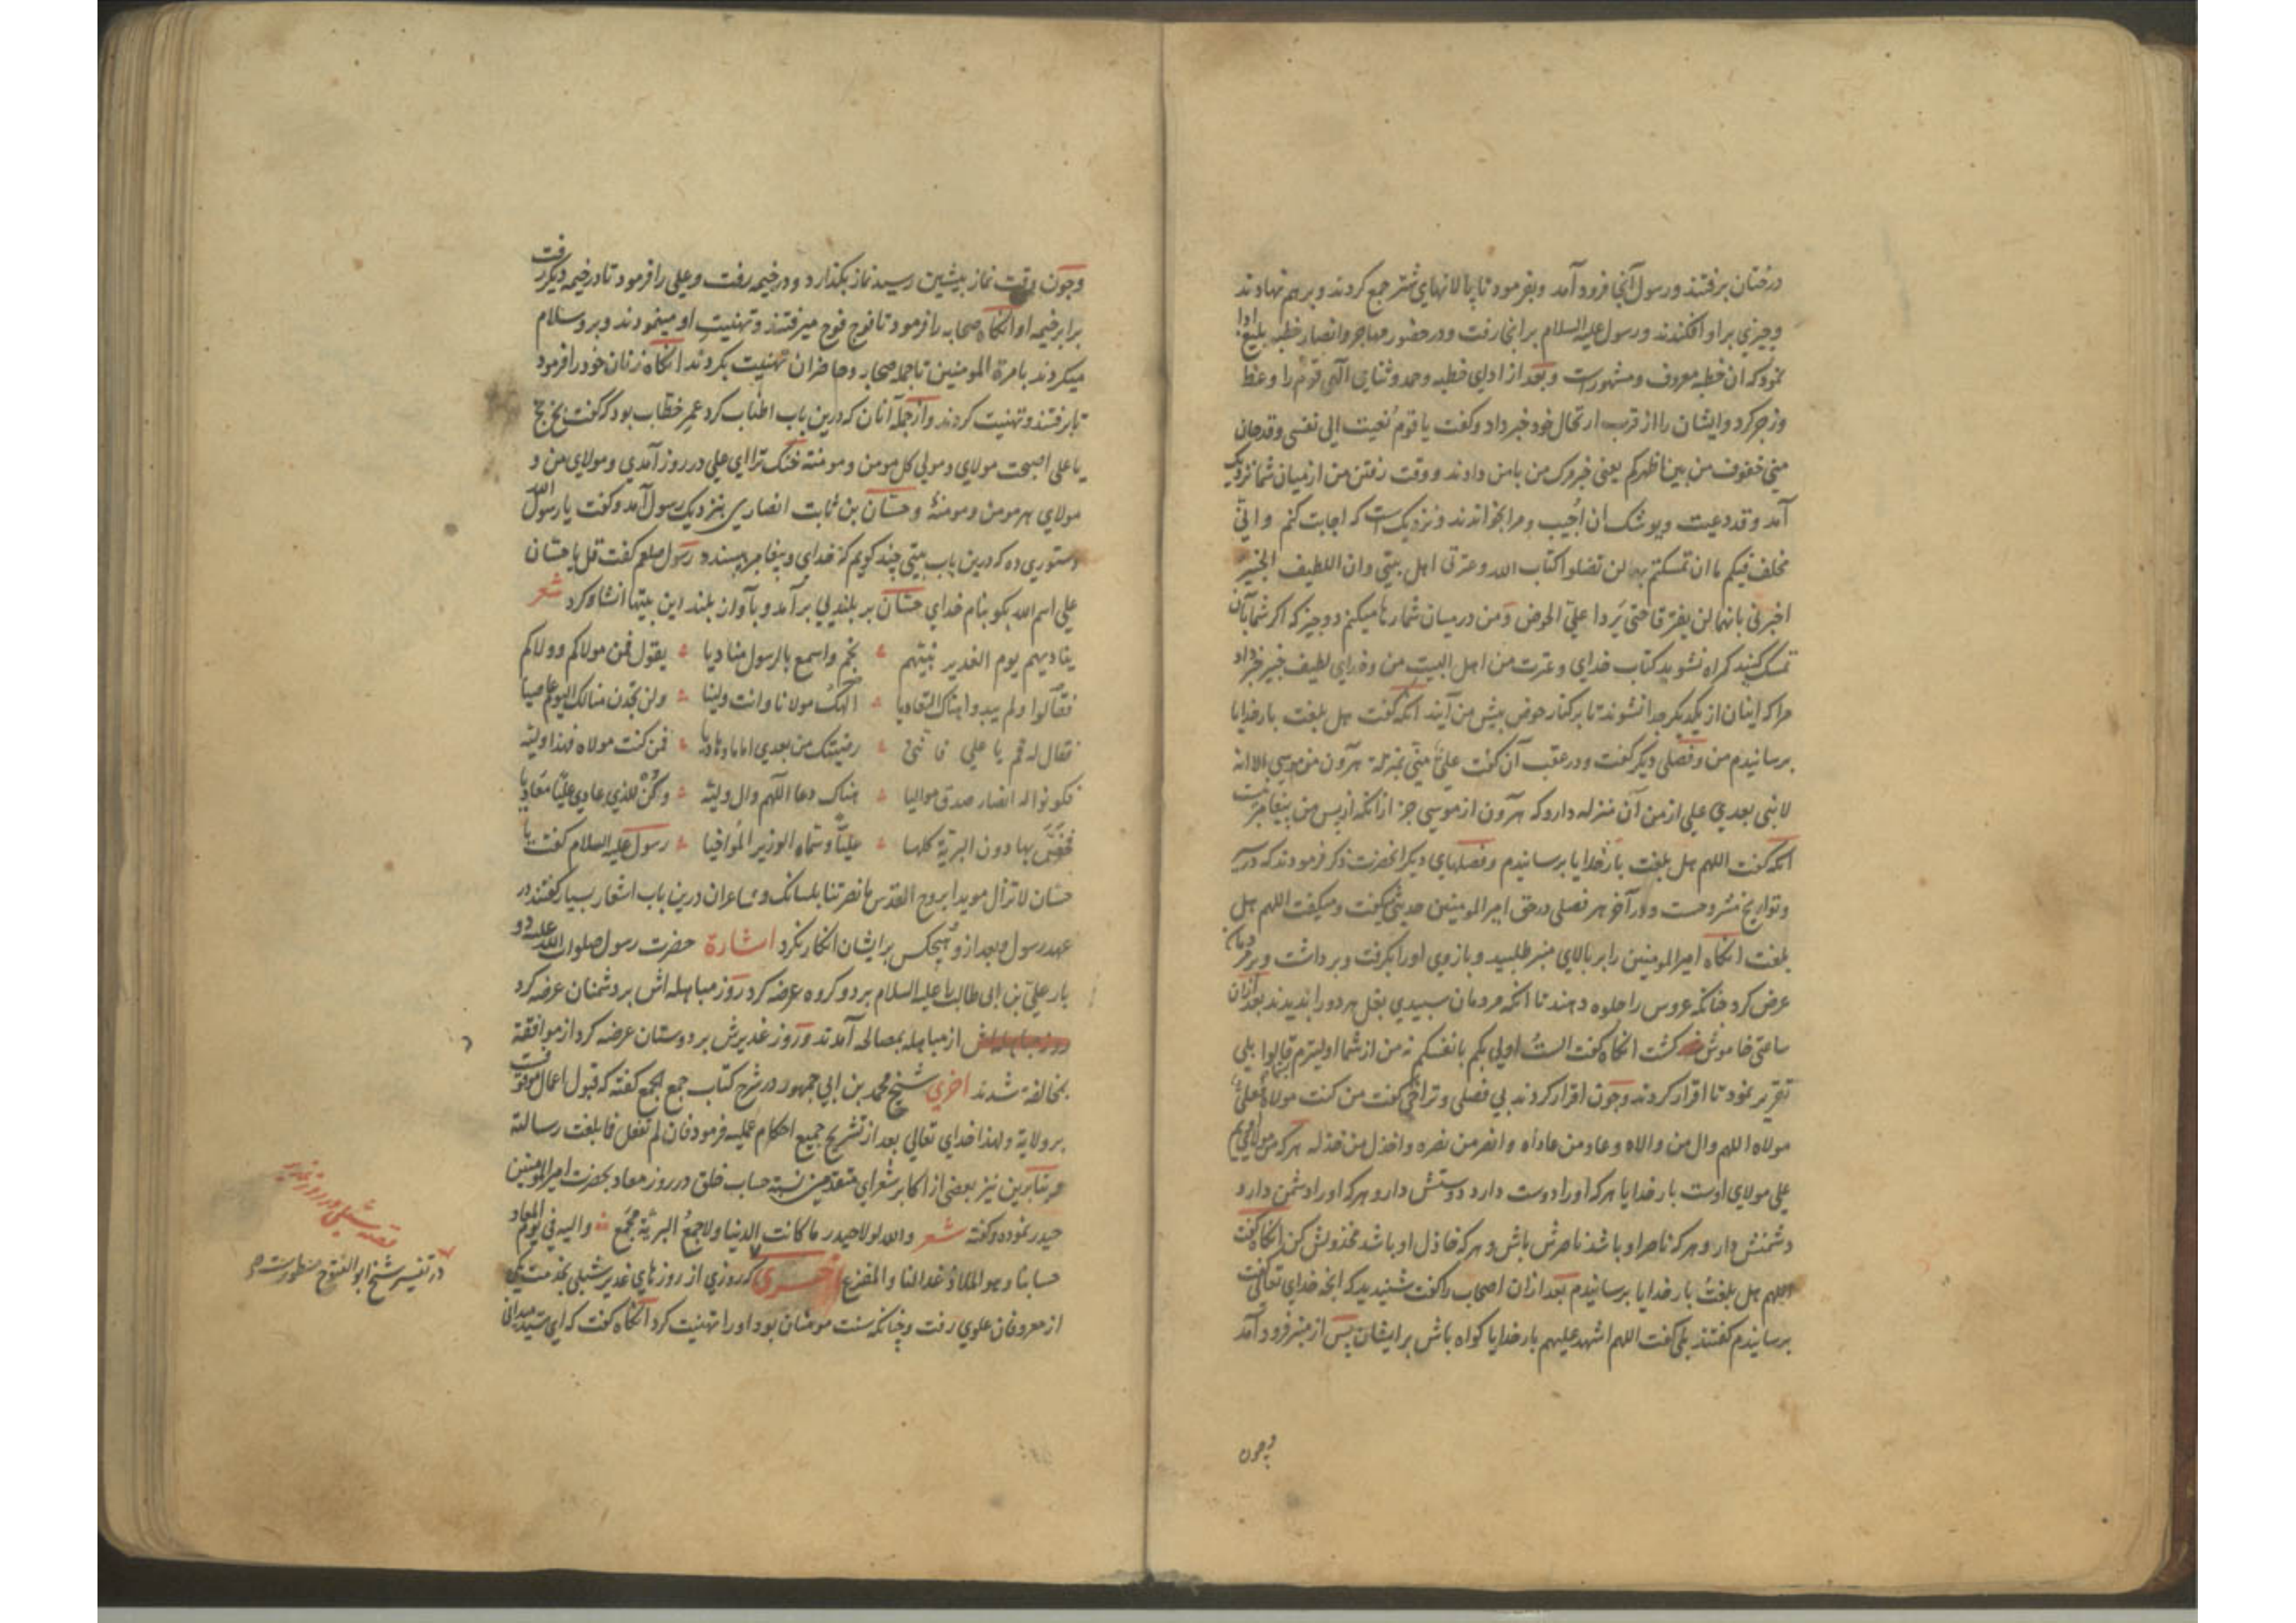 درختان برفتند و رسول آنجا فرود آمد و بفرمود تا پالانهای شتر جمع کردند و بر هم نهادند
و چیزي بر او افکندند و رسول علیه السلام بر انجا رفت و در حضور مهاجر و انصار خطبه بلیغ ادا
نمود که ان خطبه معروف و مشهورست و بعد از ادای خطبه و حمد و ثنای الهی قوم را وعظ
و زجر کرد و ایشان را از قرب ارتحال خود خبر داد و گفت یا قوم نعیت الی نفسی و قد حان
منی خفوف من بین اظهرکم یعنی خبر مرک من بامن دادند و وقت رفتن من از میان شما نزدیک
آمد و قد دعیت و یوشک ان اُجیب و مرا بخواندند و نزدیک است که اجابت کنم و انّی
مخلف فیکم ما ان تمسکتم به لن تضلوا کتاب الله و عترتی اهل بیتی و ان اللطیف الخبیر
اخبرنی بانهما لن یفترقا حتی یَردا علیّ الحوض و من در میان شما رها میکنم دو چیز که اکر شما بآن
تمسک کنید کمراه نشوید کتاب خدای و عترت من اهل البیت من و خدای لطیف خبیر خبر داد
مرا که اینان از یکدیکر جدا نشوند تا بر کنار حوض پیش من آیند انکه گفت هل بلغت بار خدایا
برسانیدم من و فصلی دیکر گفت و در عقب آن گفت علیّ منّی بمنزلة هرون من موسی الا انه
لا نبی بعدي علی از من آن منزله دارد که هرون از موسی جز از آنکه از پس من پیغامبر نیست
انکه گفت اللهم هل بلغت بار خدایا برسانیدم و فصلهای دیکر انحضرت ذکر فرمودند که در
و تواریخ مشروحست و در آخر هر فصلی در حق امیر المومنین حدیثی میگفت و میگفت اللهم هل
بلغت انکاه امیر المومنین را بر بالای منبر طلبید و بازوی اورا بکرفت و برداشت و بر مردمان
عرض کرد چنانکه عروس را جلوه دهند تا انکه مردمان سپیدي بغل هر دو را بدیدند بعد ازان
ساعتی خاموش کشت انکاه گفت الستُ اولی بکم بانفسکم نه من از شما اولیترم بشما قالوا بلی
تقریر نمود تا اقرار کردند و چون اقرار کردند بی فصلی و تراخی گفت من کنت مولاه فعلیّ
مولاه اللهم وال من والاه و عاد من عاداه و انصر من نصره و اخذل من خذله هر که من مولای ویم
علی مولای اوست بار خدایا هر که اورا دوست دارد دوستش دار و هر که اورا دشمن دارد
دشمنش دار و هر که ناصر او باشد ناصرش باش و هر که خاذل او باشد مخذولش کن انکاه گفت
اللهم هل بلغتُ بار خدایا برسانیدم بعد ازان اصحاب را گفت شنیدید که انچه خدای تعالی گفت
برسانیدم گفتند بلی گفت اللهم اشهد علیهم بار خدایا کواه باش بر ایشان پس از منبر فرود آمد
و چون
و چون وقت نماز پیشین رسید نماز بکذارد و در خیمه رفت و علی را فرمود تا در خیمه دیکر رفت
برابر خیمه او انکاه صحابه را فرمود تا فوج فوج میرفتند و تهنیت او مینمودند و برو سلام
میکردند بامرة المومنین تا جمله صحابه و حاضران تهنیت بکردند انکاه زنان خود را فرمود
تا برفتند و تهنیت کردند و از جمله آنان که درین باب اطناب کرد عمر خطاب بود که گفت بخ بخ
یا علی اصبحت مولای و مولی کل مومن و مومنة خنک ترا ای علی در روز آمدي و مولای من و
مولای هر مومن و مومنهٔ و حسّان بن ثابت انصاری بنزدیک رسول آمد و گفت یا رسول الله
دستوري ده که درین باب بیتی چند کویم که خدای و پیغامبر بپسندد رسول صلعم گفت قل یا حسّان
علی اسم الله بکو بنام خدای حسّان بر بلندیی برآمد و بآواز بلند این بیتها انشاء کرد شعر
ینادیهم یوم الغدیر نبیّهم بخم واسمع بالرسول منادیا یقول فمن مولاکم و ولاکم
فقالوا ولم یبدوا هناک التعادیا الهک مولانا وانت ولینا ولن تجدن منا لک الیوم عاصیا
فقال له قم یا علی فانّنی رضیتک من بعدي اماما وهادیا فمن کنت مولاه فهذا ولیّه
فکونوا له انصار صدق موالیا هناک دعا اللهم وال ولیّه وکُن للذي عادی علیّا معادیا
فخصّ بها دون البریة کلها علیّا وسمّاه الوزیر المُواخیا رسول علیه السلام گفت یا
حسّان لا تزال مویدا بروح القدس ما نصرتنا بلسانک و شاعران درین باب اشعار بسیار گفتند در
عهد رسول و بعد از و هیچکس بر ایشان انکار نکرد اشارة حضرت رسول صلوات الله علیه دو
بار علیّ بن ابی طالب را علیه السلام بر دو کروه عرضه کرد روز مباهله اش بر دشمنان عرضه کرد
از مباهله بمصالحه آمدند و روز غدیرش بر دوستان عرضه کرد از موافقة
بمخالفة شدند اخري شیخ محمد بن ابی جمهور در شرح کتاب جمع الجمع گفته که قبول اعمال موقوفست
بر ولایة و لهذا خدای تعالی بعد از تشریح جمیع احکام عملیه فرمود فان لم تفعل فما بلغت رسالته
و بنابرین نیز بعضی از اکابر شعرای متقدمین نسبة حساب خلق در روز معاد بحضرت امیر المومنین
حیدر نموده و گفته شعر والله لولا حیدر ما کانت الدنیا ولا جمعُ البریّة مجمَع والیه فی یوم المعاد
حسابنا وهو الملاذ غدا لنا والمفزع اخری که روزي از روزهای غدیر شبلی بخدمت یکی
از معروفان علوي رفت و چنانکه سنت مومنان بود اورا تهنیت کرد انکاه گفت که ای سید میدانی
قصه شبلی در روز غدیر
در تفسیر شیخ ابو الفتوح مسطورست